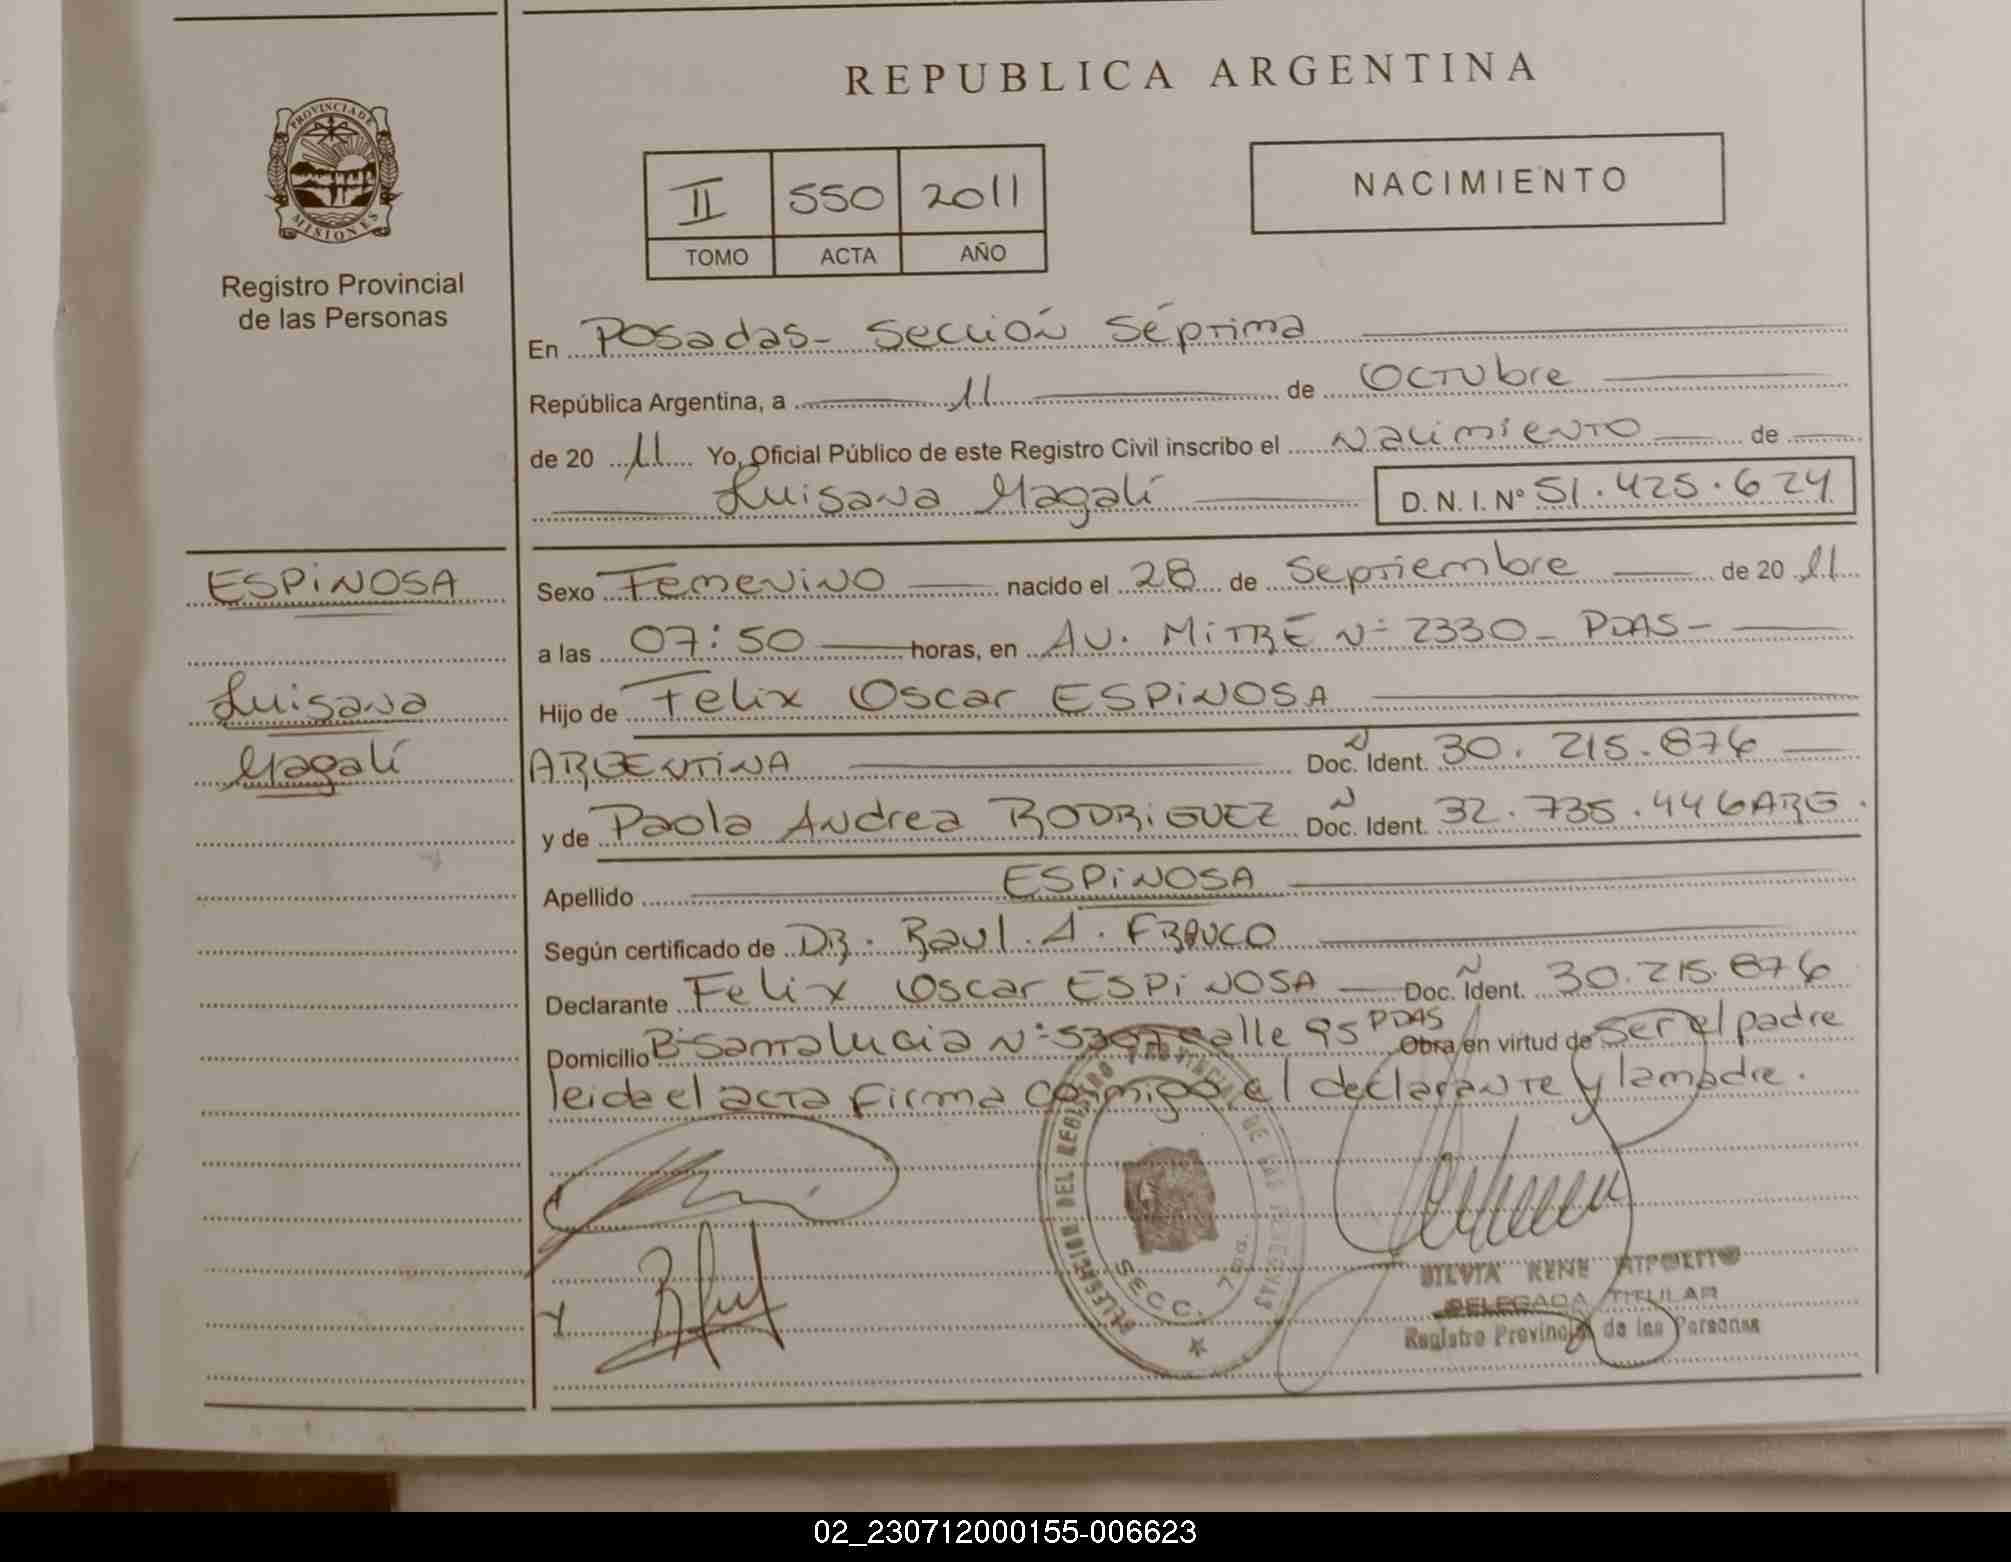 REPUBLICA ARGENTINA
PROVINCIA DE
MISIONES
Registro Provincial
de las Personas
II 550 2011
TOMO ACTA AÑO
NACIMIENTO
En Posadas- Sección Séptima
República Argentina, a 11 de Octubre
de 20 11 Yo, Oficial Público de este Registro Civil inscribo el nacimiento de
Luisana Magalí D. N. I. Nº 51.425.624
ESPINOSA
Luisana
Magalí
Sexo Femenino nacido el 28 de Septiembre de 20 11
a las 07:50 horas, en AV. MITRE Nº 2330- PDAS-
Hijo de Felix Oscar ESPINOSA
ARGENTINA Doc. Ident. 30.215.876
y de Paola Andrea RODRIGUEZ Doc. Ident. 32.735.446 ARG.
Apellido ESPINOSA
Según certificado de DR. Raul. A. FRANCO
Declarante Felix Oscar ESPINOSA Doc. Ident. 30.215.876
Domicilio Bº Santa Lucia Nº 5397 calle 95 PDAS Obra en virtud de ser el padre
leida el acta firma conmigo el declarante y la madre.
DELEGACION DEL REGISTRO PROVINCIAL DE LAS PERSONAS
SECC. 7ma.
SILVIA RENE HIPOLITO
DELEGADA TITULAR
Registro Provincial de las Personas
02_230712000155-006623